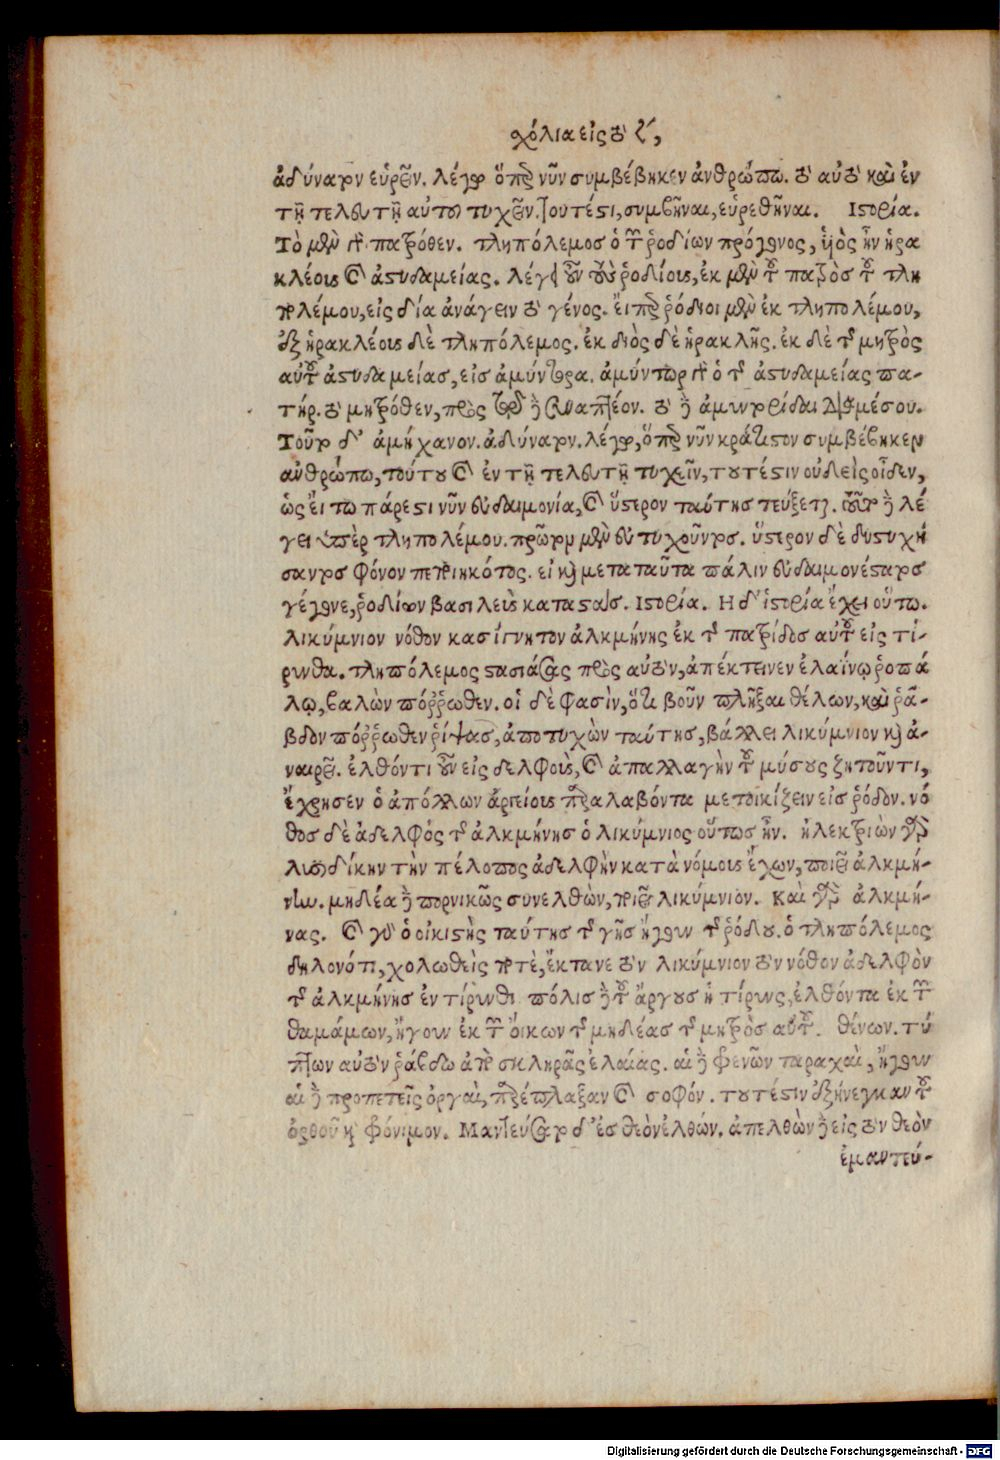 σχόλια εἰς τὸ ζʹ,
ἀδύνατον εὑρεῖν. λέγω ὅπερ νῦν συμβέβηκεν ἀνθρώπῳ. τὸ αὐτὸ καὶ ἐν
τῇ τελευτῇ αὐτοῦ τυχεῖν. τουτέστι, συμβῆναι, εὑρεθῆναι. Ιστορία.
Τὸ μὲν πατρόθεν. τληπόλεμος ὁ τῶν ῥοδίων πρόγονος, υἱὸς ἦν ἡρα
κλέους καὶ ἀστυδαμείας. λέγει οὖν τοὺς ῥοδίους, ἐκ μὲν τοῦ πατρὸς τοῦ τλη
πολέμου, εἰς δία ἀνάγειν τὸ γένος. εἴπερ ῥόδιοι μὲν ἐκ τληπολέμου,
ἐξ ἡρακλέους δὲ τληπόλεμος. ἐκ διὸς δὲ ἡρακλῆς. ἐκ δὲ τῆς μητρὸς
αὐτοῦ ἀστυδαμείας, εἰσ ἀμύντορα. ἀμύντωρ γὰρ ὁ τῆς ἀστυδαμείας πα-
τήρ. τὸ μητρόθεν, πρὸς τὸ δὲ συναπτέον. τὸ δὲ ἀμυντορίδαι διὰ μέσου.
Τοῦτο δ' ἀμήχανον. ἀδύνατον. λέγω, ὅπερ νῦν κράτιστον συμβέβηκεν
ἀνθρώπῳ, τούτου καὶ ἐν τῇ τελευτῇ τυχεῖν, τουτέστιν οὐδεὶς οἶδεν,
ὡς εἴ τῳ πάρεστι νῦν εὐδαιμονία, καὶ ὕστερον ταύτησ τεύξεται. τοῦτο δὲ λέ
γει ὑπὲρ τληπολέμου. πρῶτον μὲν εὐτυχοῦντος. ὕστερον δὲ δυστυχή
σαντος φόνον πεποιηκότος. εἰ καὶ μεταταῦτα πάλιν εὐδαιμονέστατος
γέγονε, ῥοδίων βασιλεὺς καταστάς. Ιστορία. Η δ' ἱστορία ἔχει οὕτω.
λικύμνιον νόθον κασίγνητον ἀλκμήνης ἐκ τῆς πατρίδος αὐτοῦ εἰς τί-
ρυνθα. τληπόλεμος στασιάσας πρὸς αὐτὸν, ἀπέκτεινεν ἐλαίνῳ ῥοπά
λῳ, βαλὼν πόῤῥωθεν. οἱ δὲ φασὶν, ὅτι βοῦν πλῆξαι θέλων, καὶ ῥά-
βδον πόῤῥωθεν ῥίψας, ἀποτυχὼν ταύτησ, βάλλει λικύμνιον καὶ ἀ-
ναιρεῖ. ἐλθόντι οὖν εἰς δελφοὺς, καὶ ἀπαλλαγὴν τοῦ μύσους ζητοῦντι,
ἔχρησεν ὁ ἀπόλλων ἀργείους παραλαβόντα μετοικίζειν εἰσ ῥόδον. νό
θοσ δὲ ἀδελφὸς τῆς ἀλκμήνησ ὁ λικύμνιος οὕτωσ ἦν. ἠλεκτρύων τὴν
λυσιδίκην τὴν πέλοπος ἀδελφὴν κατὰ νόμους ἔχων, ποιεῖ ἀλκμή-
νην. μηδέα δὲ πορνικῶς συνελθὼν, ποιεῖ λικύμνιον. Καὶ τῆς ἀλκμή-
νας. καὶ γὰρ ὁ οἰκιστὴς ταύτησ τῆς γῆσ ἤγουν τῆς ῥόδου. ὁ τληπόλεμος
δηλονότι, χολωθεὶς ποτὲ, ἔκτανε τὸν λικύμνιον τὸν νόθον ἀδελφὸν
τῆς ἀλκμήνησ ἐν τίρυνθι πόλισ δὲ τοῦ ἄργουσ ἡ τίρυνς, ἐλθόντα ἐκ τῶν
θαμάμων, ἤγουν ἐκ τῶν οἴκων τῆς μηδέας τῆς μητρὸσ αὐτοῦ. θένων. τύ
πτων αὐτὸν ῥάβδῳ ἀπὸ σκληρᾶς ἐλαίας. αἱ δὲ φρενῶν ταραχαὶ, ἤγουν
αἱ δὲ προπετεῖς ὀργαὶ, παρέπλαξαν καὶ σοφόν. τουτέστιν ἐξήνεγκαν τοῦ
ὀρθοῦ καὶ φρόνιμον. Μαντεύσατο δ' ἐσ θεὸν ἐλθών. ἀπελθὼν δὲ εἰς τὸν θεὸν
ἐμαντεύ-
Digitalisierung gefördert durch die Deutsche Forschungsgemeinschaft - DFG